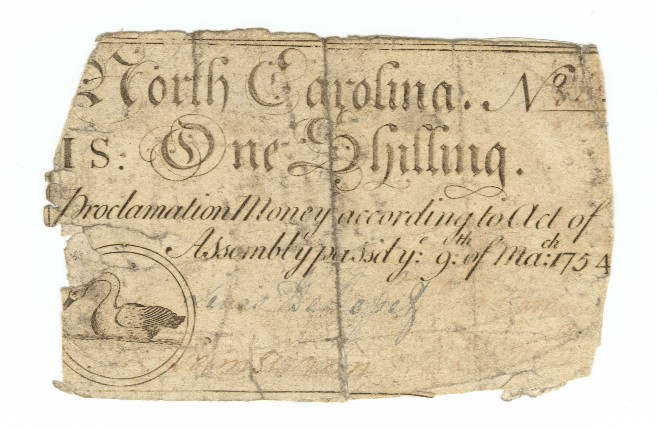 North Carolina. No
1S: One Shilling.
Proclamation Money according to Act of
Assembly pass'd ye. 9th. of Mach: 1754
Lewis